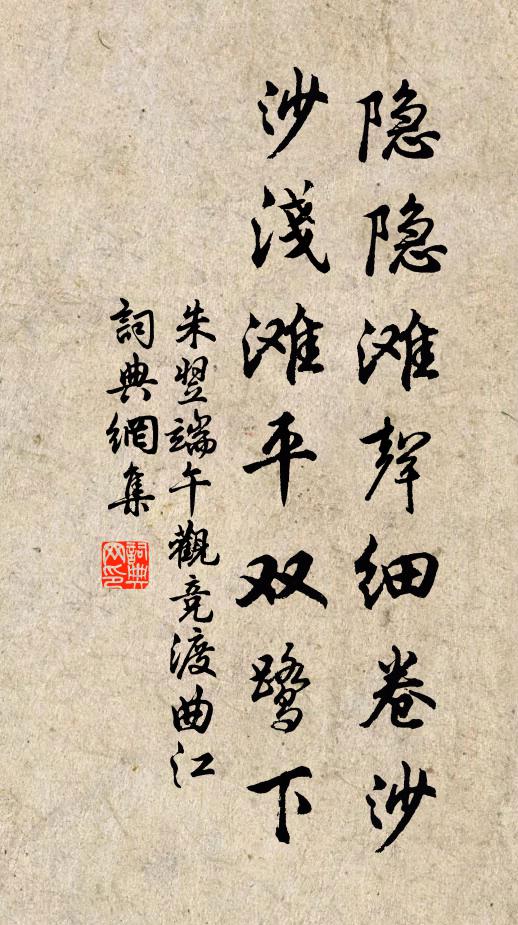 隐隐滩聲细卷沙
沙淺滩平双鹭下
朱翌端午觀竞渡曲江
詞典網集
詞典
网印